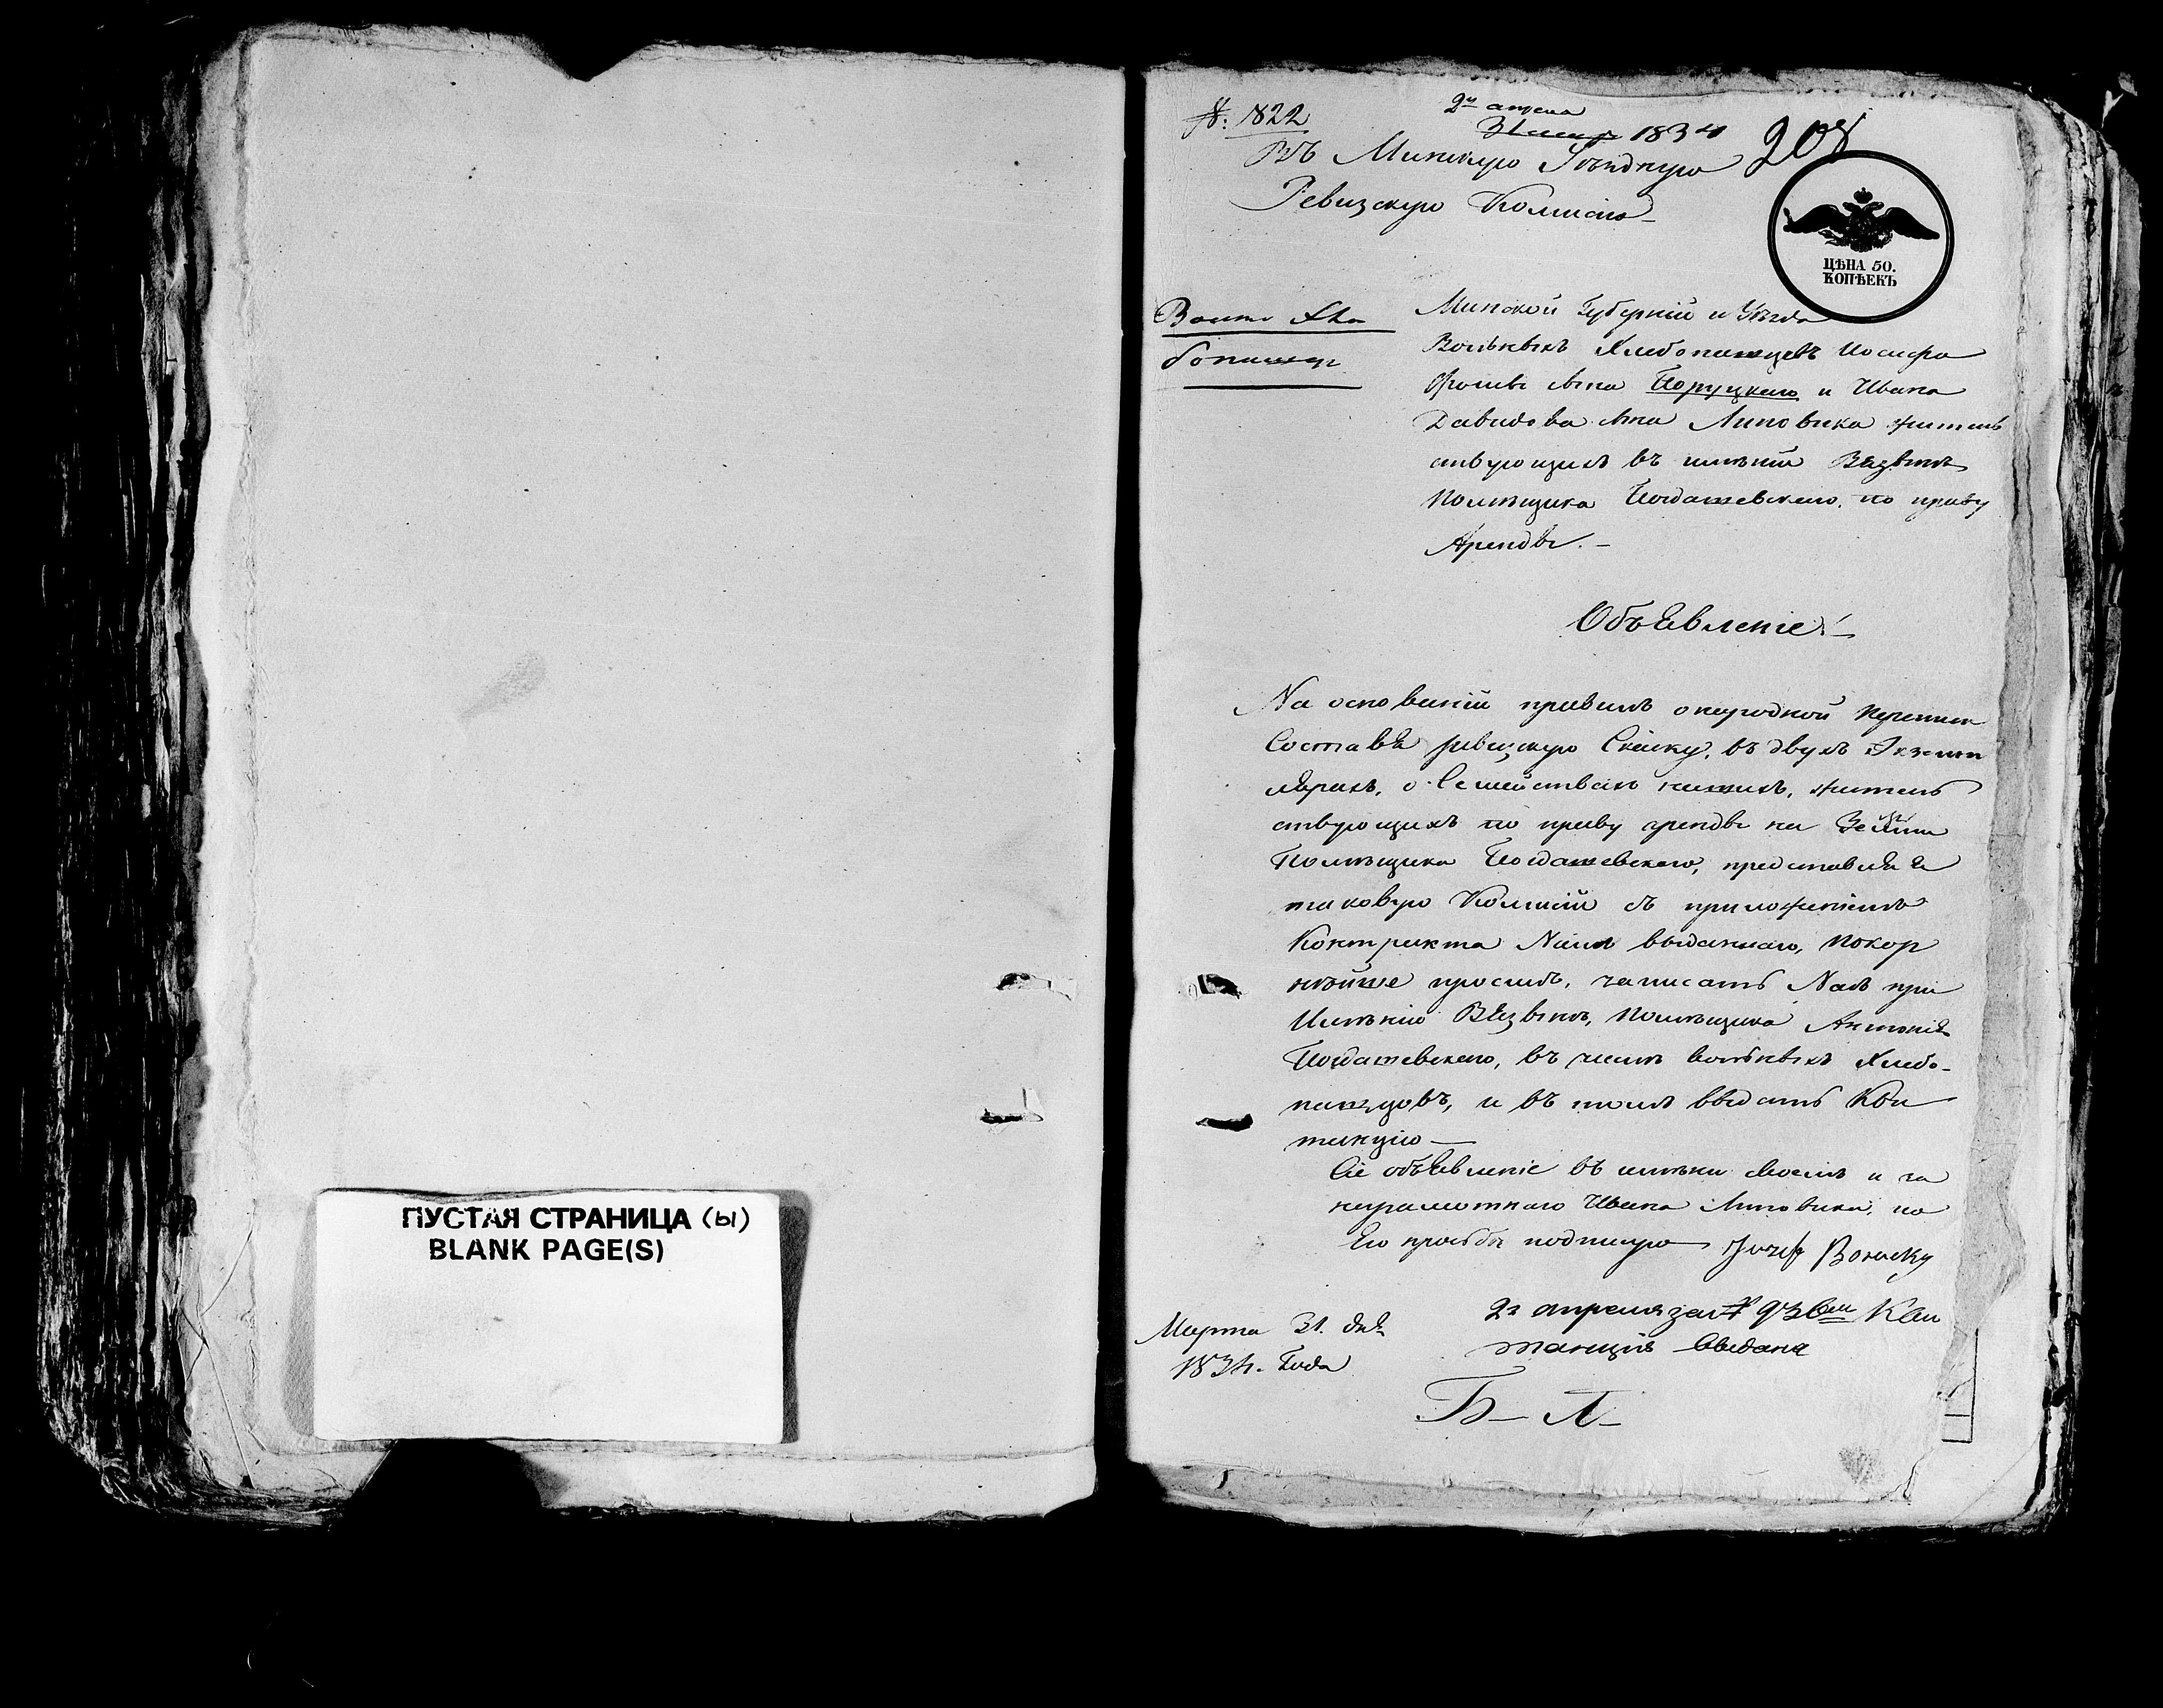 ПУСТАЯ СТРАНИЦА (ы)
BLANK PAGE(S)
№: 822
2го апреля
1834
208
Въ Минскую Уѣздную
Ревизскую Комисію
ЦѢНА 50.
КОПѢЕКЪ
Вольн Хлѣ
бопашцы
Минской Губерніи и Уѣзда
Вольныхъ Хлебопашцевъ Иосифа
сына Боруцкаго и Ивана
Давидова сына Липовика житель
ствующихъ въ имѣніи Вязынь
Помѣщика по праву
Аренды.
Объявленіе!
На основаніи правилъ о народной переписи
Составя ревизскую Скаску, въ двухъ Экземп
лярахъ, о Семействахъ нашихъ, житель
ствующихъ по праву аренды на Земли
Помѣщика представляя
таковую Комисіи съ приложеніемъ
Контракта Намъ выданнаго, покор
нѣйше просимъ, записать Насъ при
Имѣнію Вязынь, Помѣщика Антонія
въ числѣ вольныхъ Хлебо-
пашцовъ, и въ томъ выдать Кви
танцію
Сіе объявленіе въ имѣни своемъ и за
неграмотнаго Ивана Липовика, по
Его прозьбѣ подписую Jozef Borucky
Марта 31. дня
1834. Года
2г апреля за № 93 Кви
танция выдана
Б- Л-